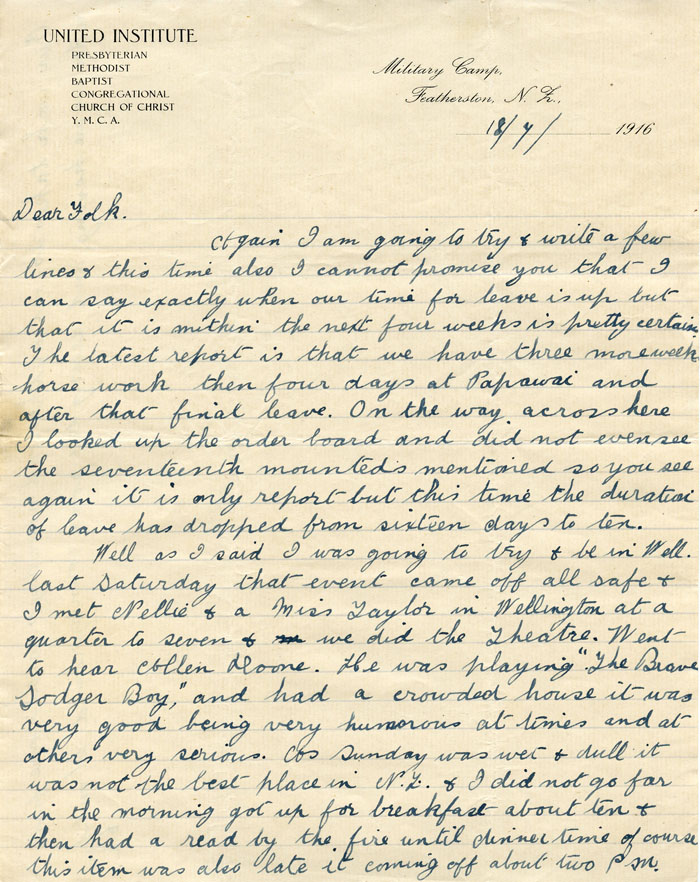 UNITED INSTITUTE
PRESBYTERIAN
METHODIST
BAPTIST
CONGREGATIONAL
CHURCH OF CHRIST
Y. M. C. A.
Military Camp,
Featherston, N. Z.,
18/7/ 1916
Dear Folk.
Again I am going to try & write a few
lines & this time also I cannot promise you that I
can say exactly when our time for leave is up but
that it is within the next four weeks is pretty certain
The latest report is that we have three more week
horse work then four days at Papawai and
after that final leave. On the way across here
I looked up the order board and did not even see
the seventeenth mounteds mentioned so you see
again it is only report but this time the duration
of leave has dropped from sixteen days to ten.
Well as I said I was going to try & be in Well.
last Saturday that event came off all safe &
I met Nellie & a Miss Taylor in Wellington at a
quarter to seven & we did the Theatre. Went
to hear Allen Doone. He was playing "The Brave
Sodger Boy," and had a crowded house it was
very good being very humorous at times and at
others very serious. As Sunday was wet & dull it
was not the best place in N.Z. & I did not go far
in the morning got up for breakfast about ten &
then had a read by the fire until dinner time of course
this item was also late it coming off about two P.M.